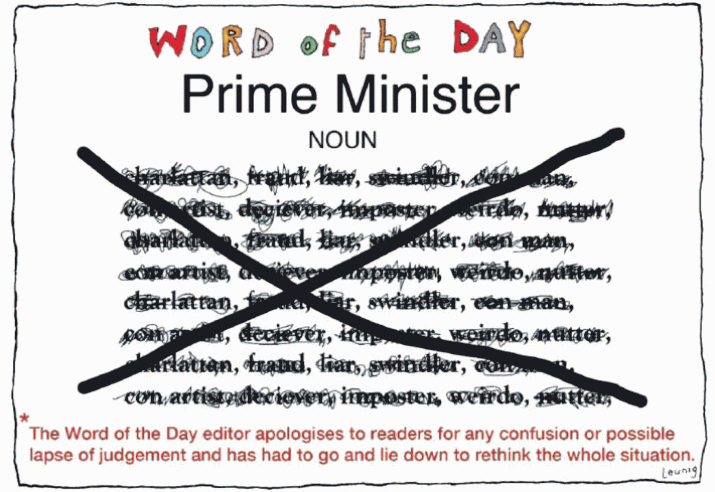 WORD of the DAY
Prime Minister
NOUN
charlattan, fraud, liar, swindler, con man,
con artist, deciever, imposter, weirdo, nutter,
charlattan, fraud, liar, swindler, con man,
con artist, deciever, imposter, weirdo, nutter,
charlattan, fraud, liar, swindler, con man,
con artist, deciever, imposter, weirdo, nutter,
charlattan, fraud, liar, swindler, con man,
con artist, deciever, imposter, weirdo, nutter,
* The Word of the Day editor apologises to readers for any confusion or possible
lapse of judgement and has had to go and lie down to rethink the whole situation.
Leunig